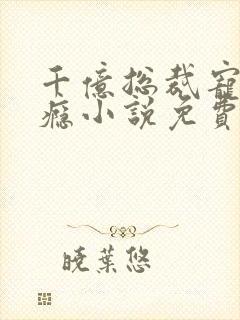 千億總裁寵
癮小說免費
曉葉悠